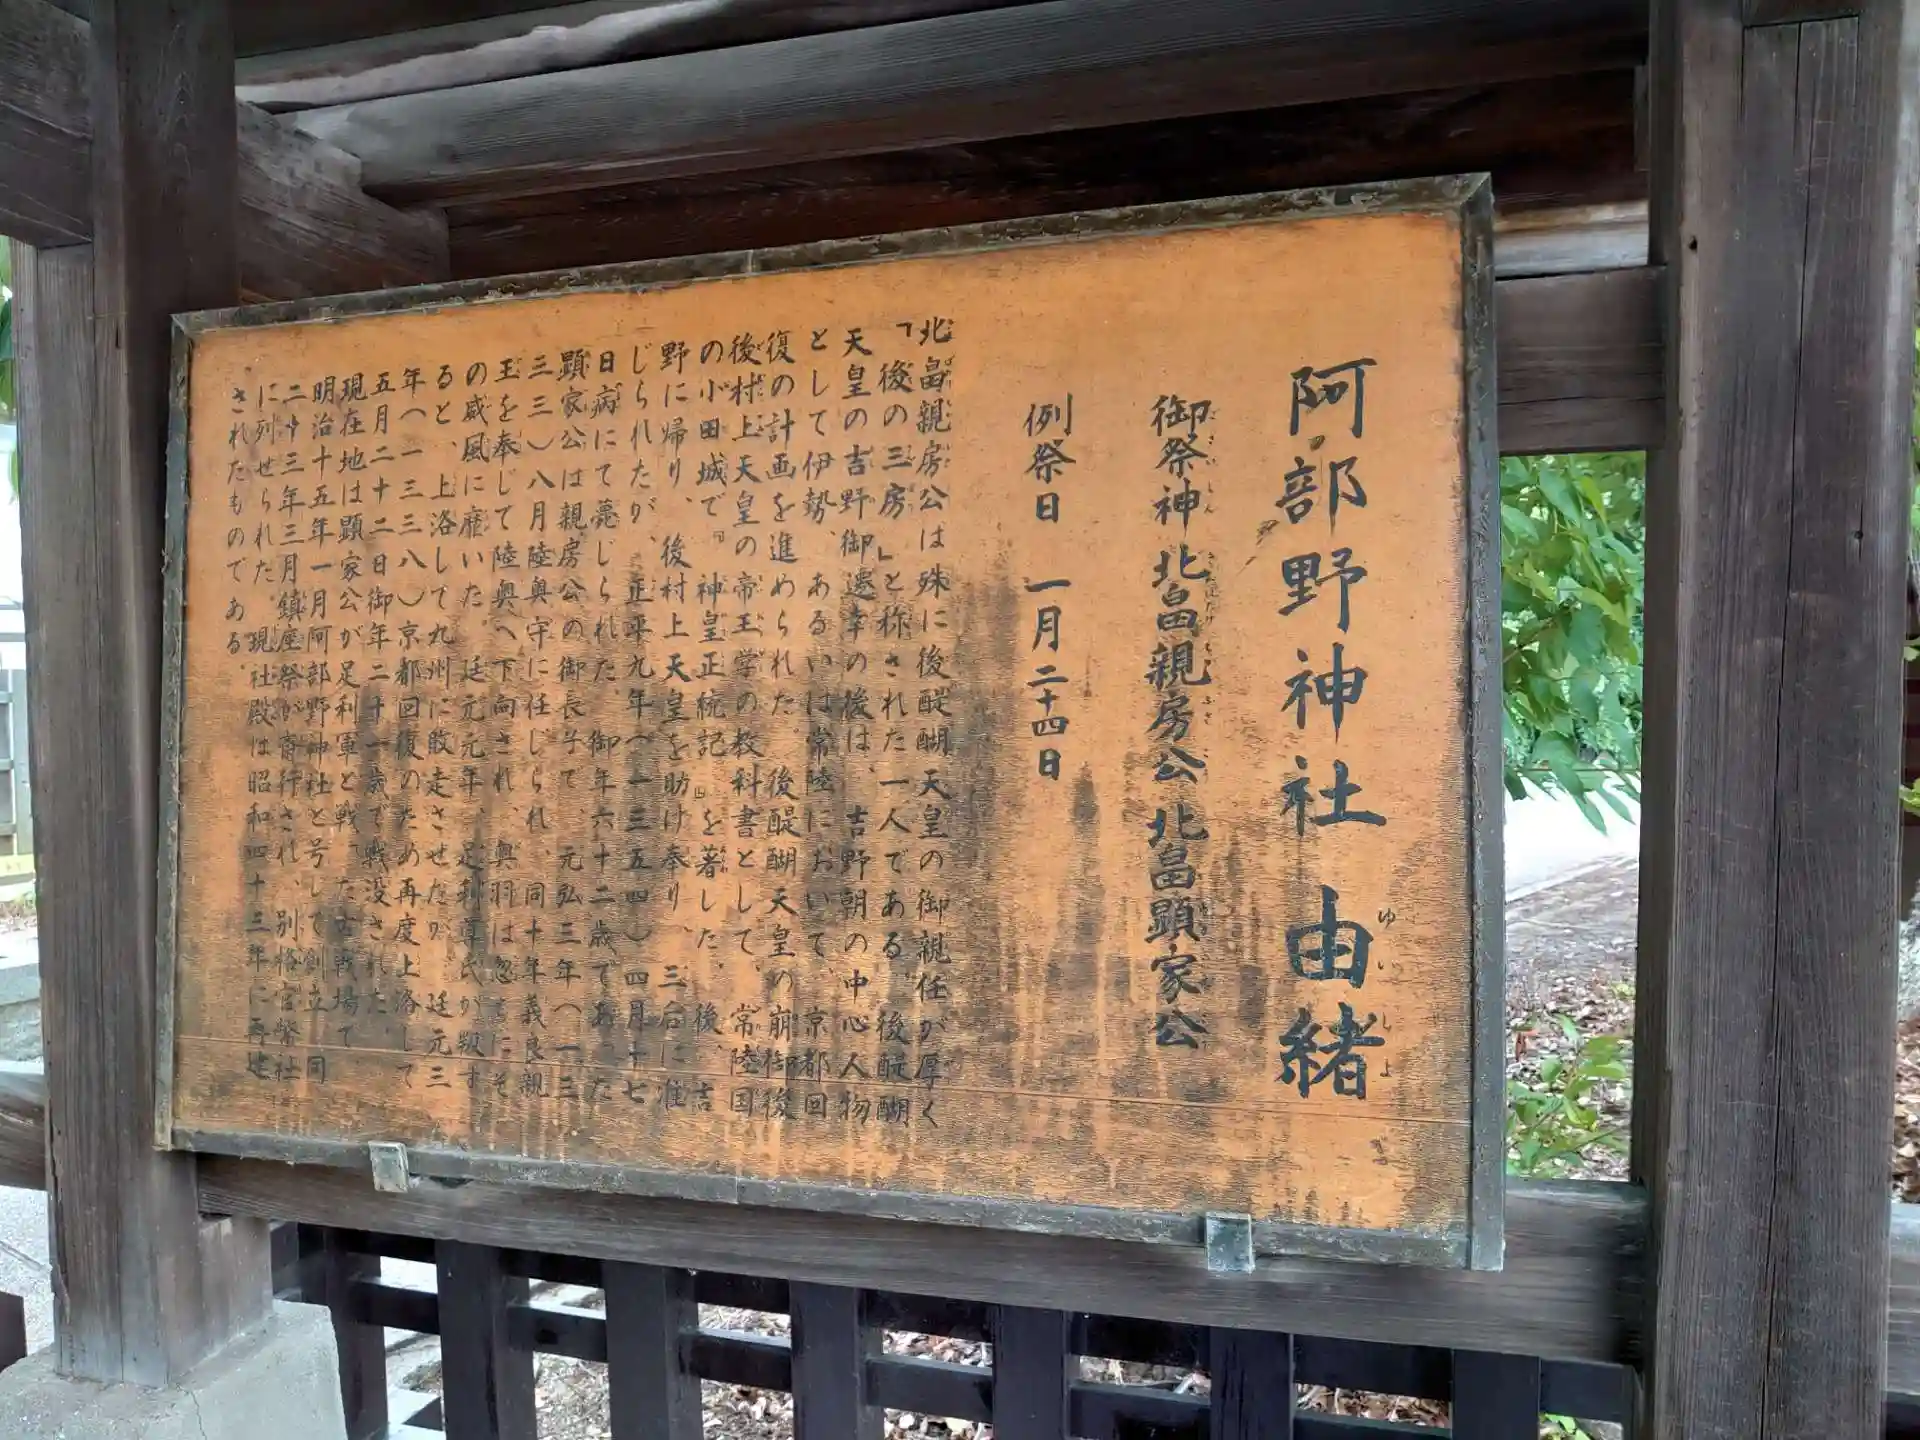 阿部野神社 由緒
ゆいしよ
御祭神 北畠親房公 北畠顕家公
例祭日 一月二十四日
北畠親房公は殊に後醍醐天皇の御親任が厚く
「後の三房」と称された一人である。後醍醐
天皇の吉野御遷幸の後は、吉野朝の中心人物
として伊勢、あるいは常陸において、京都回
復の計画を進められた。後醍醐天皇の崩御後
後村上天皇の帝王学の教科書として、常陸国
の小田城で『神皇正統記』を著した。後、吉
野に帰り、後村上天皇を助け奉り、三后に准
じられたが、正平九年（一三五四）四月十七
日病にて薨じられた。御年六十二歳であった
顕家公は親房公の御長子で、元弘三年（一三
三三）八月陸奥守に任じられ、同十年義良親
王を奉じて陸奥へ下向され、奥羽は忽ちにそ
の威風に靡いた。延元元年、足利尊氏が叛す
ると、上洛して九州に敗走させたが、延元三
年（一三三八）京都回復のため再度上洛して
五月二十二日御年二十一歳で戦没された。
現在地は顕家公が足利軍と戦った古戦場で
明治十五年一月阿部野神社と号して創立 同
二十三年三月鎮座祭が斎行され、別格官幣社
に列せられた。現社殿は昭和四十三年に再建
されたものである。